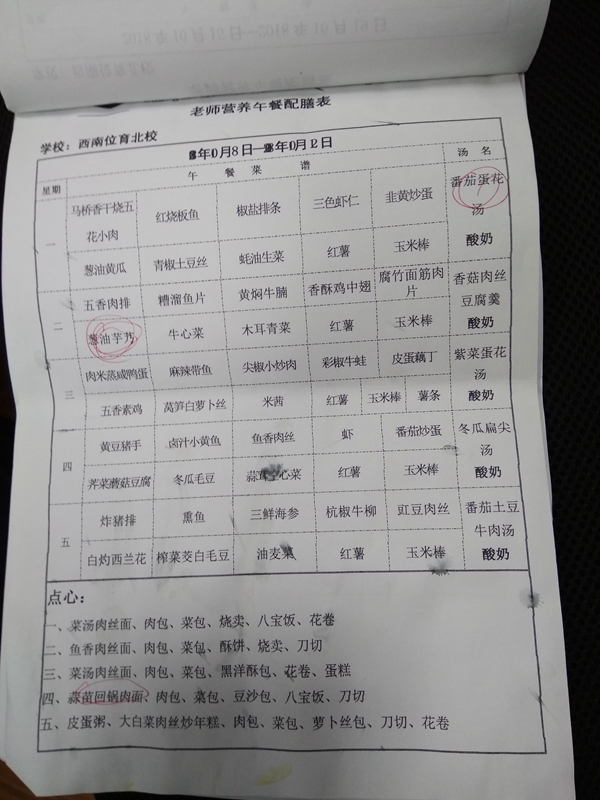 老师营养午餐配膳表
学校：西南位育北校
年10月8日—年10月12日
星期 午餐菜谱 汤名
一 马桥香干烧五花小肉 红烧板鱼 椒盐排条 三色虾仁 韭黄炒蛋 番茄蛋花汤
葱油黄瓜 青椒土豆丝 蚝油生菜 红薯 玉米棒 酸奶
二 五香肉排 糟溜鱼片 黄焖牛腩 香酥鸡中翅 腐竹面筋肉片 香菇肉丝豆腐羹
葱油芋艿 牛心菜 木耳青菜 红薯 玉米棒 酸奶
三 肉米蒸咸鸭蛋 麻辣带鱼 尖椒小炒肉 彩椒牛蛙 皮蛋藕丁 紫菜蛋花汤
五香素鸡 莴笋白萝卜丝 米苋 红薯 玉米棒 薯条 酸奶
四 黄豆猪手 卤汁小黄鱼 鱼香肉丝 虾 番茄炒蛋 冬瓜扁尖汤
荠菜蘑菇豆腐 冬瓜毛豆 心菜 红薯 玉米棒 酸奶
五 炸猪排 熏鱼 三鲜海参 杭椒牛柳 豇豆肉丝 番茄土豆牛肉汤
白灼西兰花 榨菜茭白毛豆 油麦菜 红薯 玉米棒 酸奶
点心：
一、菜汤肉丝面、肉包、菜包、烧卖、八宝饭、花卷
二、鱼香肉丝面、肉包、菜包、酥饼、烧卖、刀切
三、菜汤肉丝面、肉包、菜包、黑洋酥包、花卷、蛋糕
四、蒜苗回锅肉面、肉包、菜包、豆沙包、八宝饭、刀切
五、皮蛋粥、大白菜肉丝炒年糕、肉包、菜包、萝卜丝包、刀切、花卷